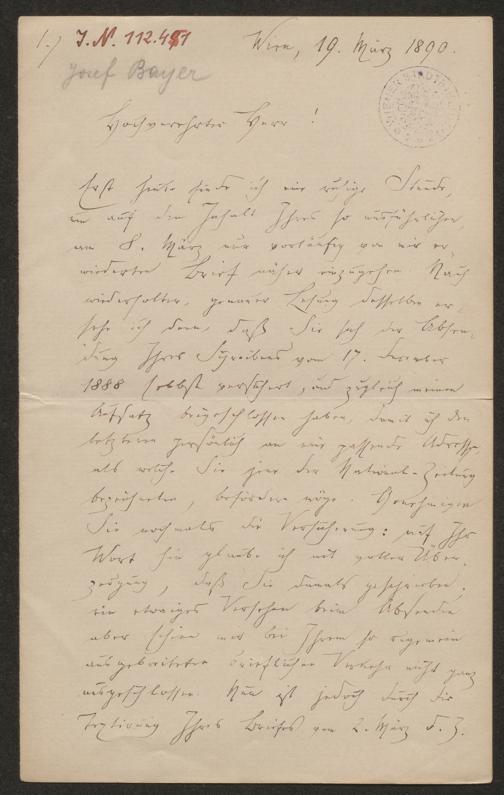 1.) J. N. 112.481
Wien, 19. März 1890.
Josef Bayer
WIENER STADTBIBL
Hochverehrter Herr!
Erst heute finde ich eine ruhige Stunde,
um auf den Inhalt Ihres so ausführlichen
am 8. März nur vorläufig von mir er-
wiederten Brief näher einzugehen. Nach
wiederholter, genauer Lesung desselben er-
sehe ich denn, daß Sie sich der Absen-
dung Ihres Schreibens vom 17. December
1888 selbst versichert, und zugleich meinen
Aufsatz beigeschlossen haben, damit ich den
letzteren persönlich an eine passende Adresse,
als welche Sie jene der National-Zeitung
bezeichneten, befördern möge. Genehmigen
Sie nochmals die Versicherung: auf Ihr
Wort hin glaube ich mit voller Über-
zeugung, daß Sie damals geschrieben.
ein etwaiges Versehen beim Absenden
aber schien mir bei Ihrem so ungemein
ausgebreiteten brieflichen Verkehr nicht ganz
ausgeschlossen. Nun ist jedoch durch die
Textirung Ihres Briefes vom 2. März d. J.